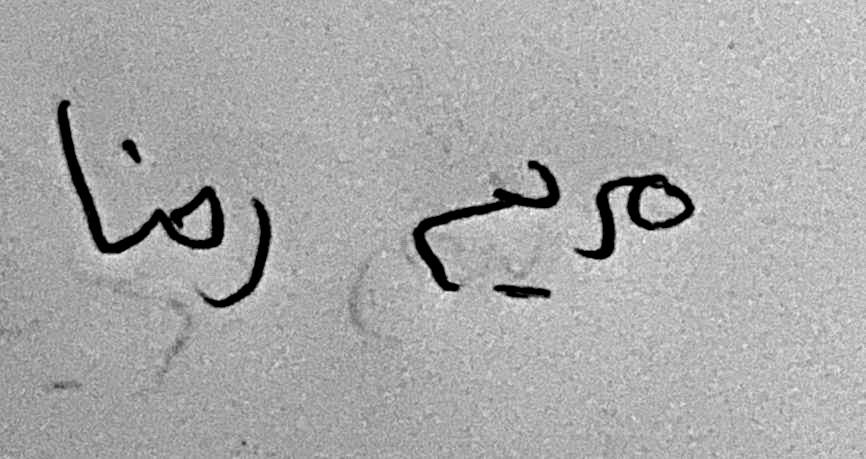 مريم رضا